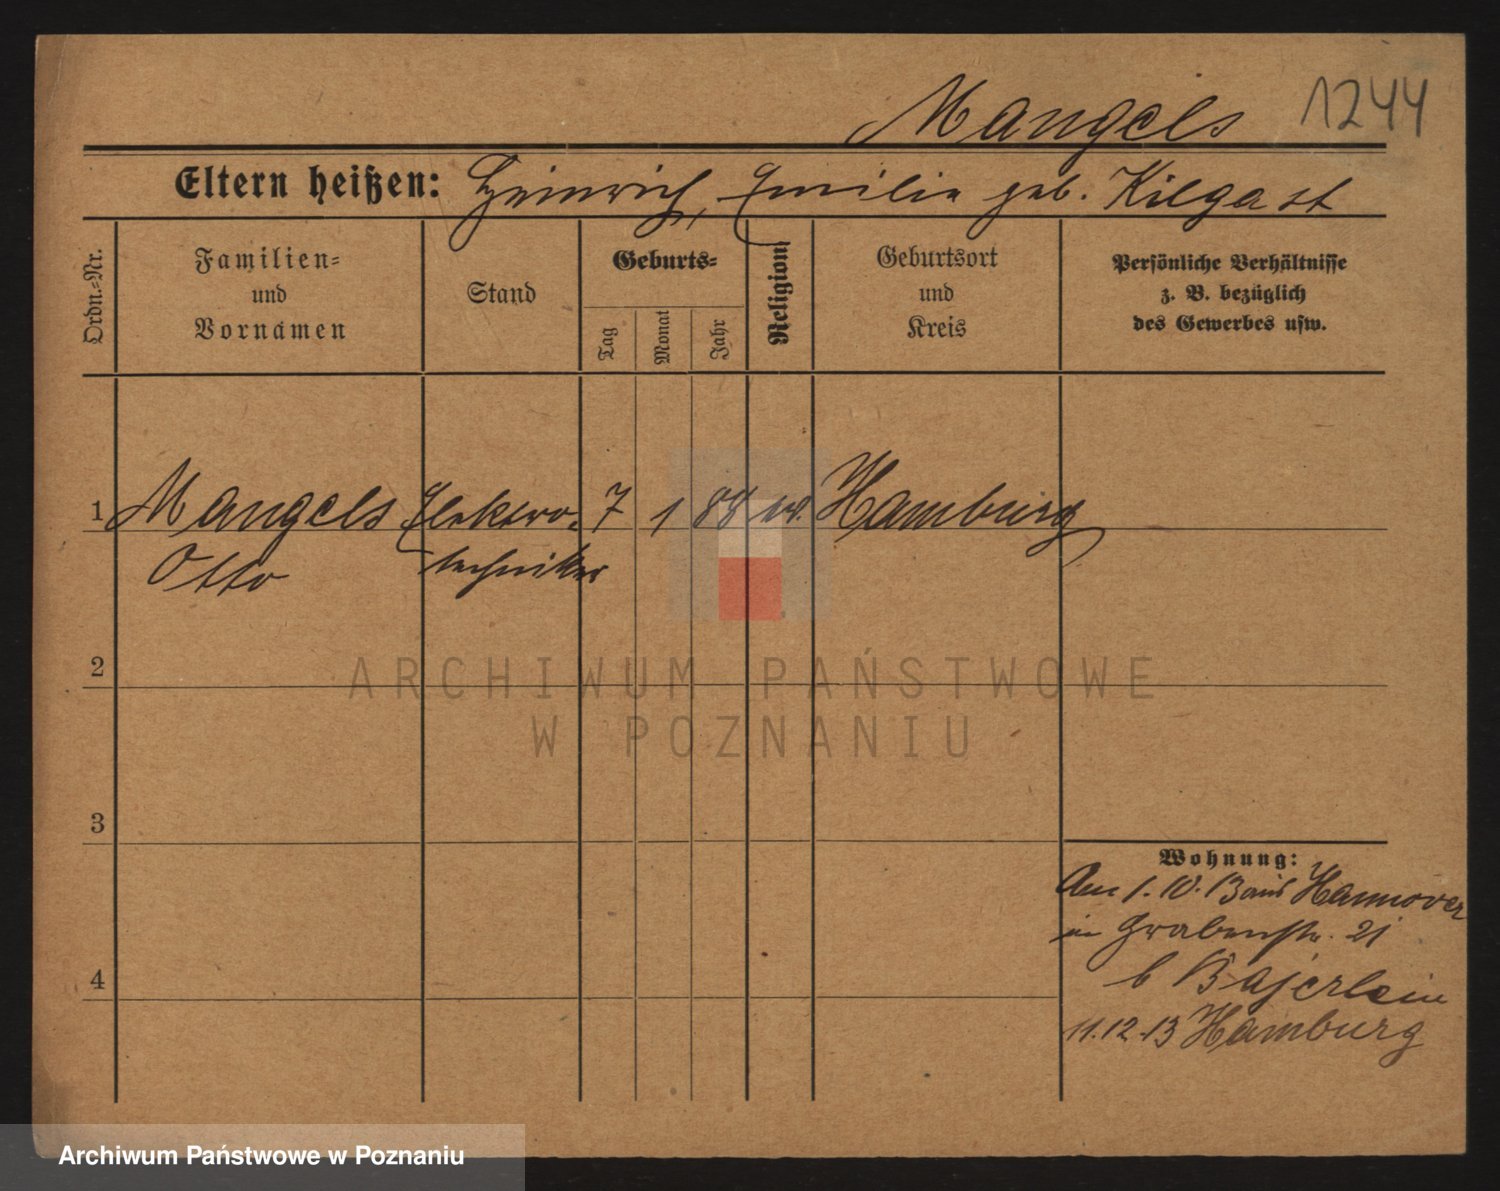 Mangels 1244
Eltern heißen: Heinrich, Emilie geb. Kilgast
Ordn.-Nr.
Familien-
und
Vornamen
Stand
Geburts-
Tag
Monat
Jahr
Religion
Geburtsort
und
Kreis
Persönliche Verhältnisse
z. B. bezüglich
des Gewerbes usw.
1 Mangels Elektro- 7 1 88 ev. Hamburg
Otto techniker
2
ARCHIWUM PAŃSTWOWE
W POZNANIU
3
Wohnung:
Am 1.10.13 aus Hannover
in Grabenstr. 21
b Bajerlein
4
11.12.13 Hamburg
Archiwum Państwowe w Poznaniu